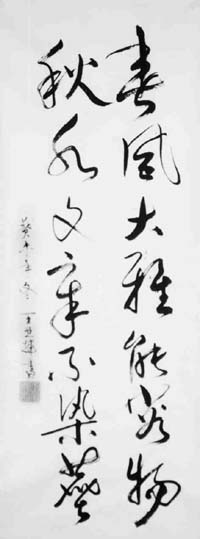 春風大雅能容物
秋水文章不染塵
癸未年冬